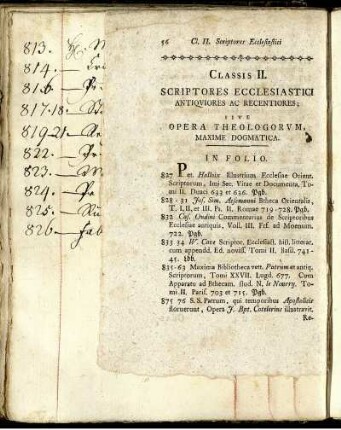 813.
814. —
816 —
817-18.
819-21 —
822. —
823. —
824. —
825. —
826 —
56 Cl. II. Scriptores Ecclesiastici
CLASSIS II.
SCRIPTORES ECCLESIASTICI
ANTIQVIORES AC RECENTIORES;
SIVE
OPERA THEOLOGORVM,
MAXIME DOGMATICA.
IN FOLIO.
827 Pet. Halloix Illustrium Ecclesiae Orient.
Scriptorum, Imi Sec. Vitae et Documenta, To-
mi II. Duaci 633 et 636. Pgb.
828-31 Jos. Sim. Assemanni Btheca Orientalis,
T. I, II, et III. Ps. II. Romae 719-728. Pgb.
832 Cas. Oudini Commentarius de Scriptoribus
Ecclesiae antiquis, Voll. III. Frf. ad Moenum,
722. Pgb.
833 34 W. Cave Scriptor. Ecclesiast. hist. literar.
cum appendd. Ed. noviss. Tomi II. Basil. 741-
45. Ldb.
835-63 Maxima Bibliotheca vett. Patrum et antiq.
Scriptorum, Tomi XXVII. Lugd. 677. Cum
Apparatu ad Bthecam. stud. N. le Nourry. To-
mi II. Paris. 703 et 715. Pgb.
875 76 S. S. Patrum, qui temporibus Apostolicis
floruerunt, Opera J. Bpt. Cotelerius illustravit,
Re-